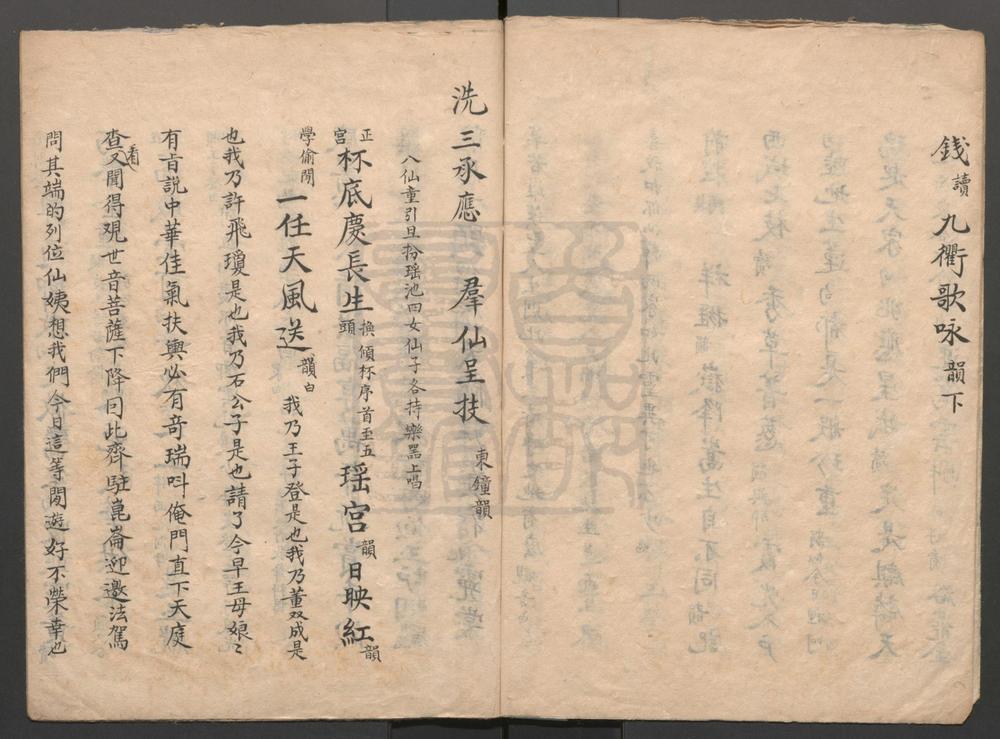 錢讀九衢歌咏韻下
洗三承應　羣仙呈技　東鐘韻
八仙童引旦扮瑤池四女仙子各持樂器上唱
正宮杯底慶長生換頭傾杯序首至五瑶宮韻日映紅韻
學偷閒一任天風送韻白我乃王子登是也我乃董双成是
也我乃許飛瓊是也我乃石公子是也請了今早王母娘〻
有㫖説中華佳氣扶輿必有竒瑞呌俺門直下天庭
查看又聞得觀世音菩薩下降囙此齊駐崑崙迎邀法駕
問其端的列位仙姨想我們今日這等閒遊好不榮幸也